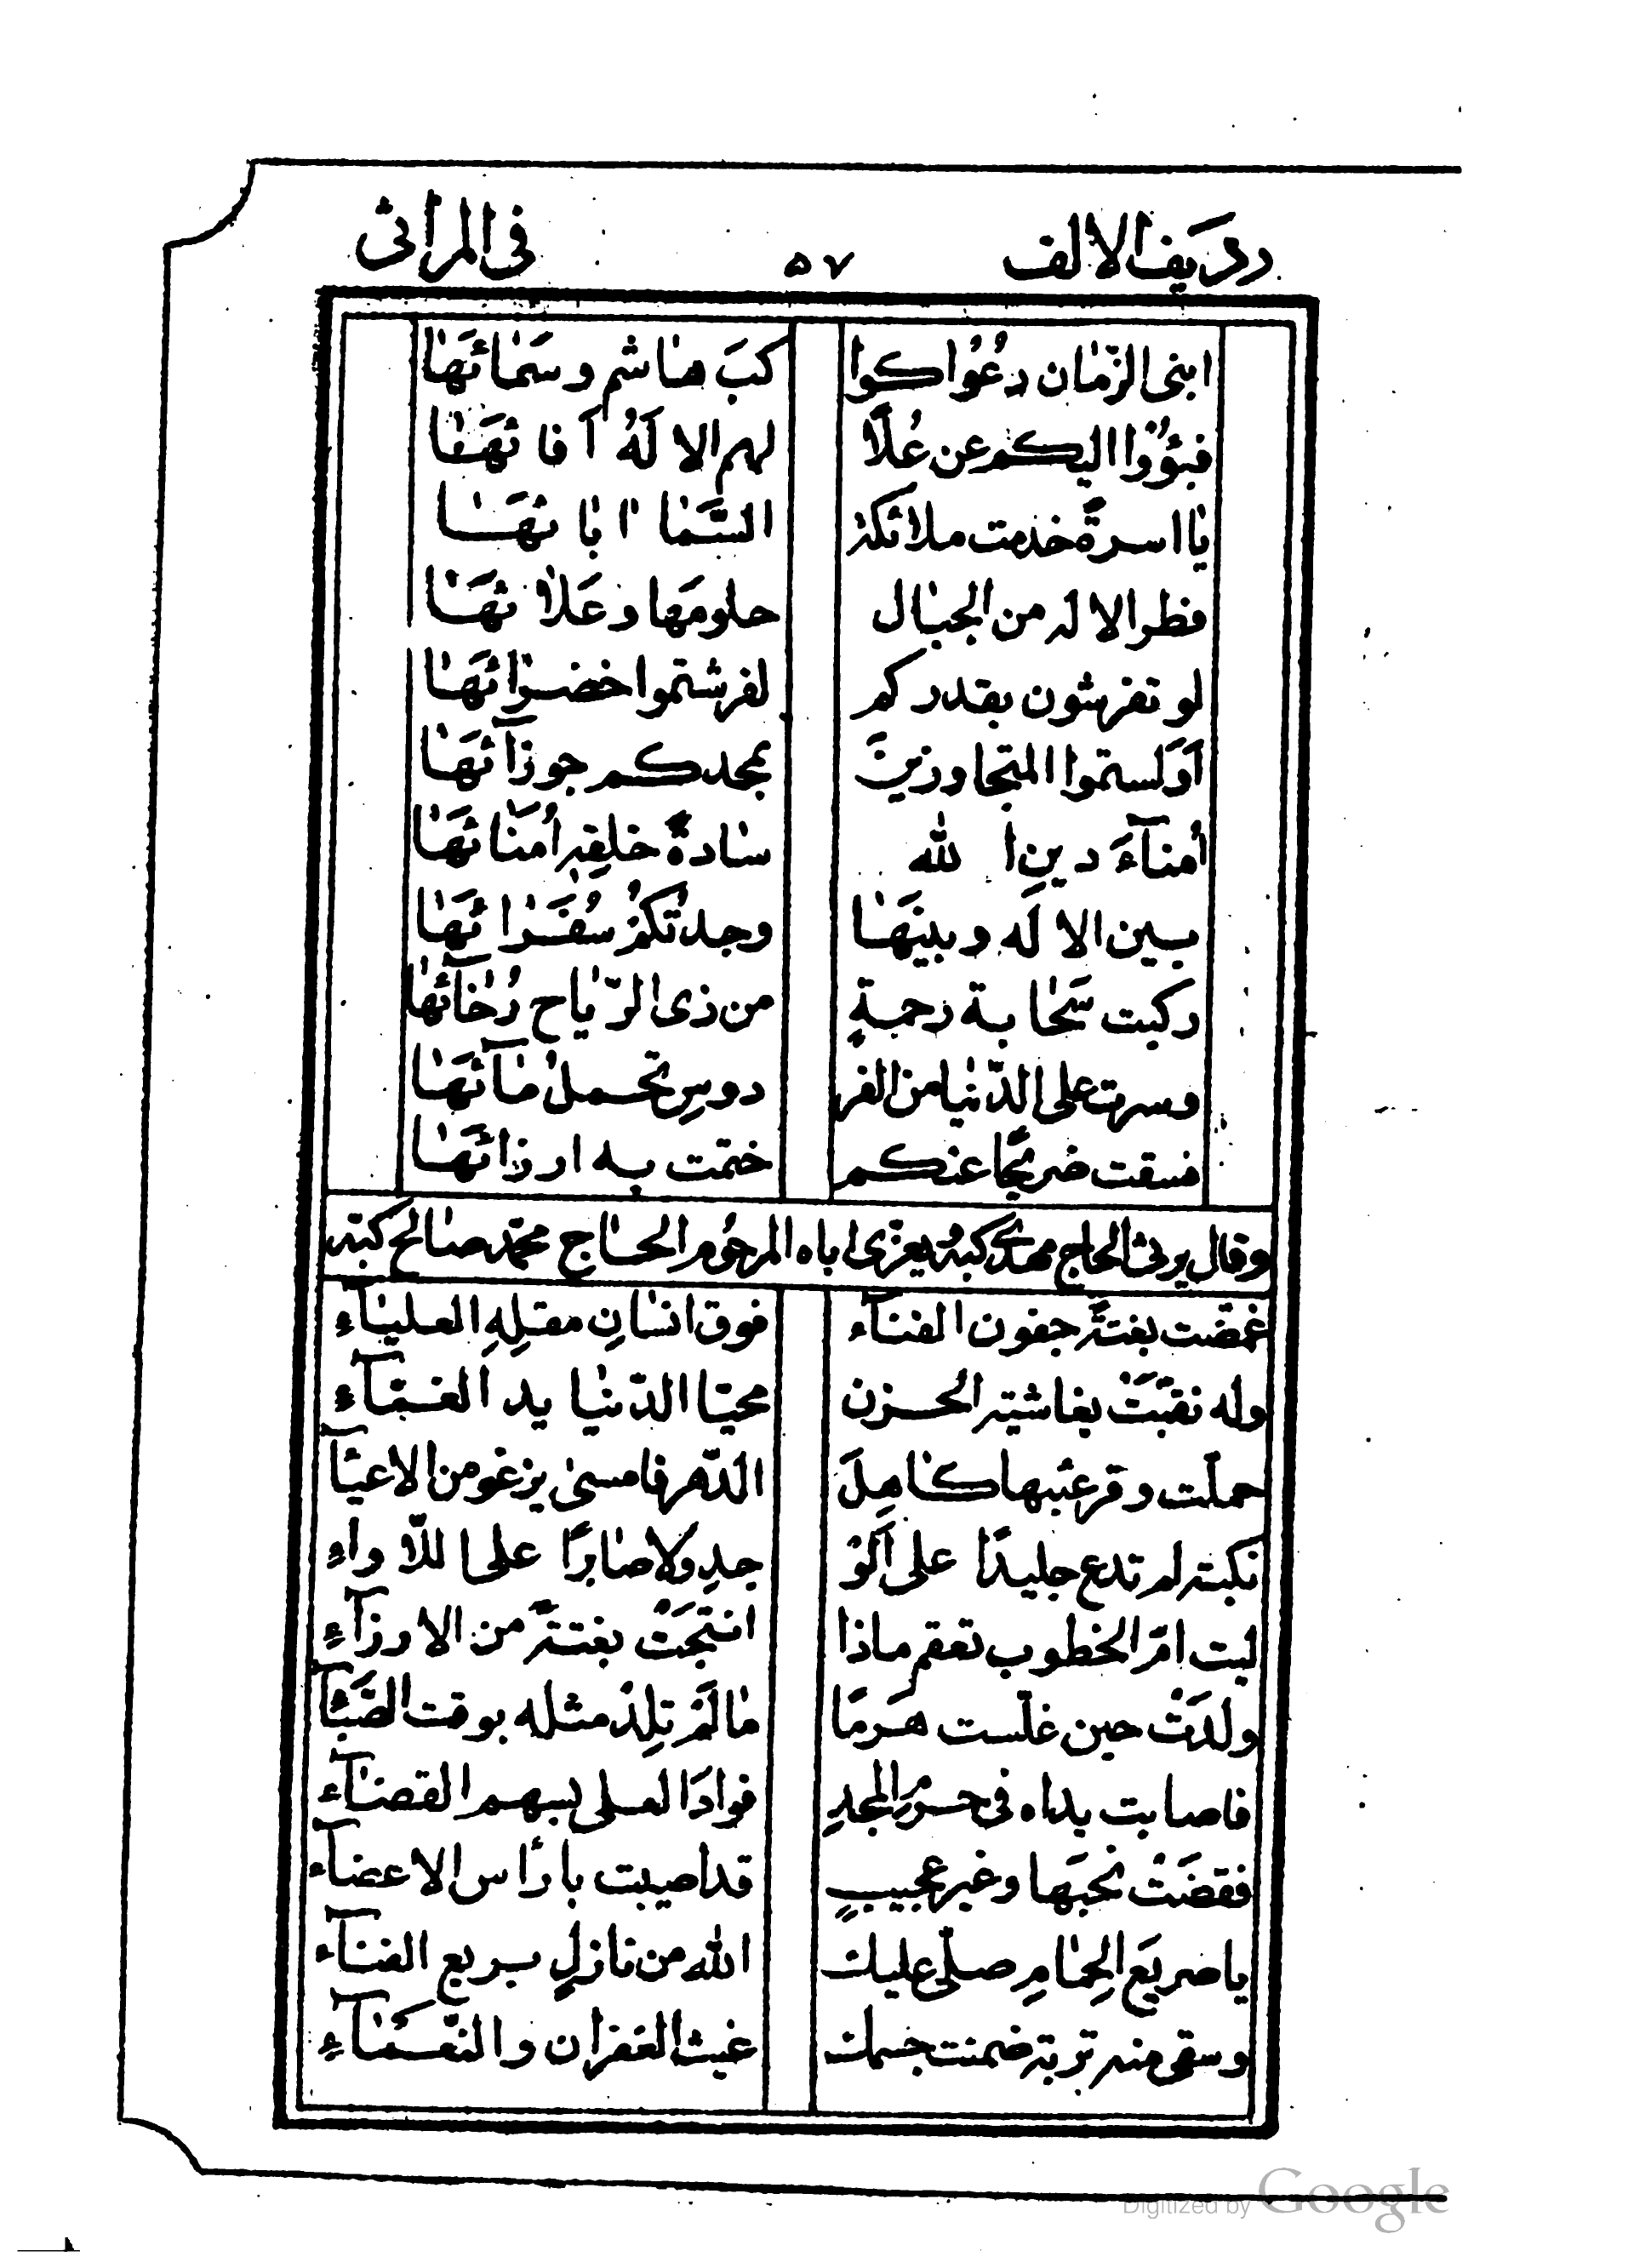 رديف الالف ٥٧ في المراثي
ابنى الزّمان دعُوا كوا كبَ هاشم وسَمائهَا
فبؤوا اليكم عن عُلاً لهم الا لَهُ آفا ئهَا
يا اسرةً خدمت ملائكة السَّما ابا ئهَا
فطر الاله من الجبال حلومَها وعَلا ئهَا
لو تفرشون بقدركم لفرشتموا خضرائهَا
أوَلستموا المتجاوزينَ بمجدكم جوزآئهَا
أمنآءَ دينِ الله سادةَ خلقِهِ أمنائهَا
بين الا لَه وبينهَا وجدتكمُ سُفَرائهَا
ركبت سَحابة رحمةٍ من ذى الرّياح رُخآئها
وسرت على الدّنيا من الفر دوسِ تحملُ مآئهَا
فسقت ضريحًا عنكم ختمت به ارزائهَا
وقال يرثي الحاج مهدي كبه ويعزّى اباه المرحُوم الحاج محمّد صالح كبّه
غمّضت بغتةً جفون الفنآء فوق انسانِ مقلةِ العليآءِ
وله نقبَتْ بغاشية الحزن محيّا الدّنيا يد الغمّآءِ
حملت وقر عبئها كاهِلَ الدّهر فامسىٰ يرغو من الاعيآ
نكبة لم تدع جليدًا على الوَ جدِ ولا صابرًا على اللّا واءِ
ليت امّ الخطوب تعقم ماذا انتجَتْ بغتةً من الارزآءِ
ولدَتْ حين غلّست هَرمًا ما لَم تلِدْ مثله بوقت الضَّبَآ
فاصابت يداه فى حرم المجدِ فوادَ العلى بسهم القضآء
فقضَتْ نحبَها وغير عجيبٍ قد اصيبت بارأس الاعضآء
يا صريعَ الحِمامِ صلّى عليك الله من نازلٍ بربع الفنآء
وسقى منه تربة ضمنت جسمك غيث الغفران والنّعمآءِ
Digitized by Google